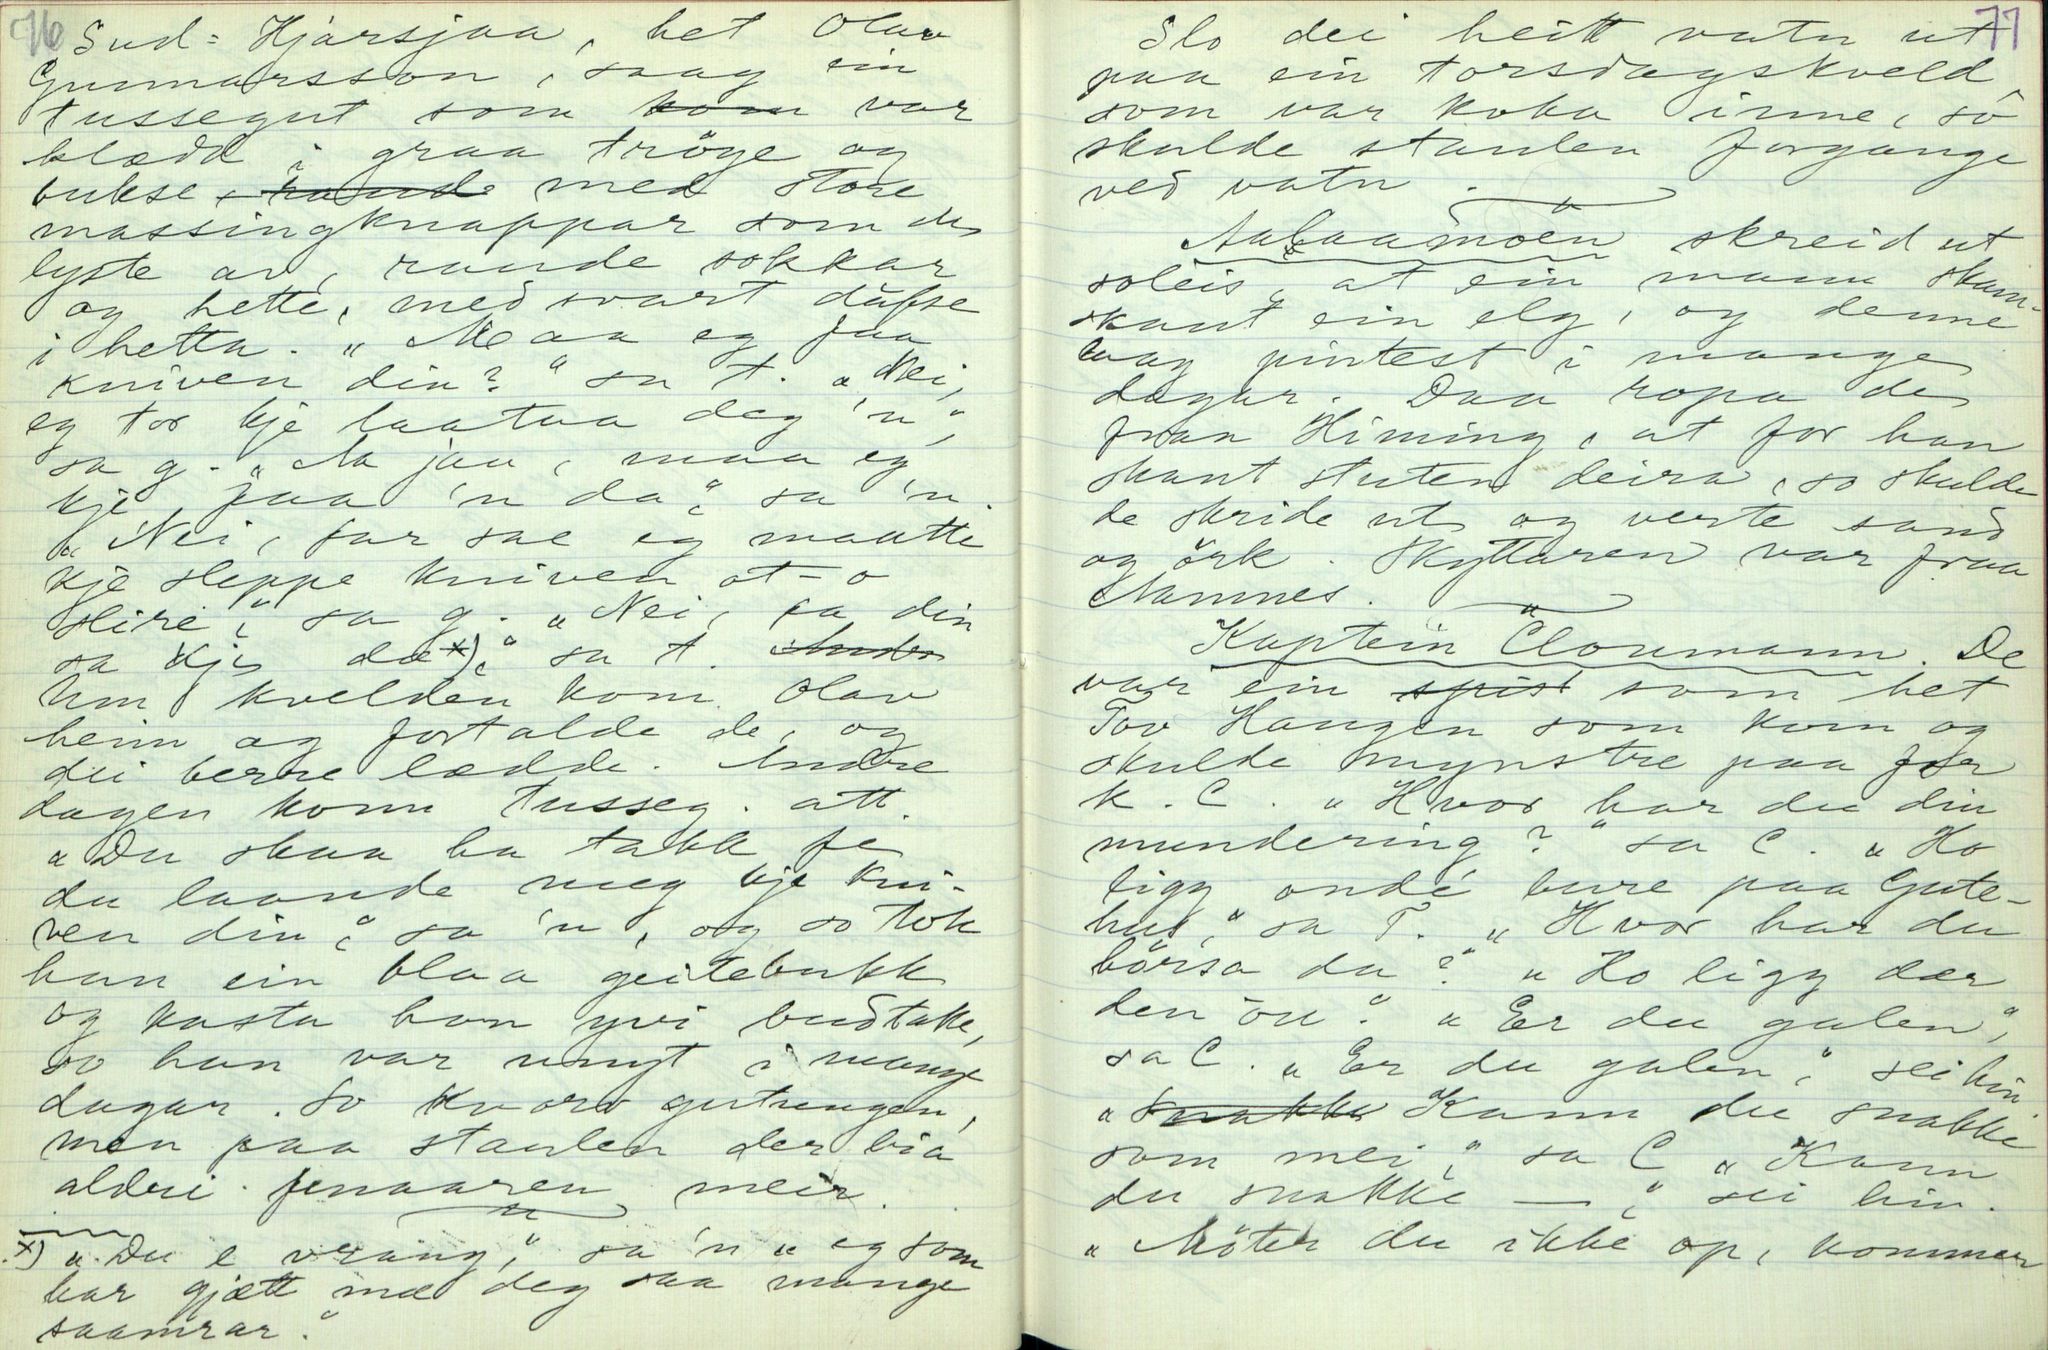 76
Sud-Hjarsjaa, het Olav
Gunnarsson, saag ein
tussegut som kom var
klædd i graa tröye og
bukse, raude med store
massingknappar som de
lyste av, raude sokkar
og hette, med svart dufse
i hetta. „Maa eg faa
kniven din?“ sa t. „Nei,
eg tor kje laataa deg 'n“,
sa g. „Aa jau, maa eg
kje faa 'n da“, sa 'n.
„Nei, far sae eg maatte
kje sleppe kniven ot-o
slire“, sa g. „Nei, fa din
sa kje dæ x)“, sa t.
Um kvelden kom Olav
heim og fortalde de, og
dei berre lædde. Andre
dagen kom tusseg. att.
„Du skaa ha takk fe
du laande meg kje kni-
ven din“, sa 'n, og so tok
han ein blaa geitebukk
og kasta han yvi budtake,
so han var unyt i mange
dagar. So kvarv gutungen,
men paa staulen der bia
aldri fenaaren meir.
x) „Du e vrang“, sa 'n „eg som
har gjætt mæ deg saa mange
saamrar.“
77
Slo dei heitt vatn ut
paa ein torsdagskveld
som var koka inne, so
skulde staulen forgange
ved vatn.
Aabaamoen skreid ut
soleis, at ein mann skam-
skaut ein elg, og denne
laag pintest i mange
dagar. Daa ropa de
fraa Himing, at for han
skaut stuten deira, so skulde
de skride ut og verte sand
og örk. Skyttaren var fraa
Namnes.
Kaptein Cloumann. De
var ein spist som het
Tov Haugen som kom og
skulde mynstre paa for
K. C. „Hvor har du din
mundering?“ sa C. „Ho
ligg onde bure paa Gute-
hus“, sa T. „Hvor har du
börsa da?“ „Ho ligg dær
den öu“. „Er du galen“,
sa C. „Er du galen“, sei hin.
„Snakke Kann du snakke
som mei“, sa C „Kann
du snakke —“, sei hin.
„Möter du ikke op, kommer